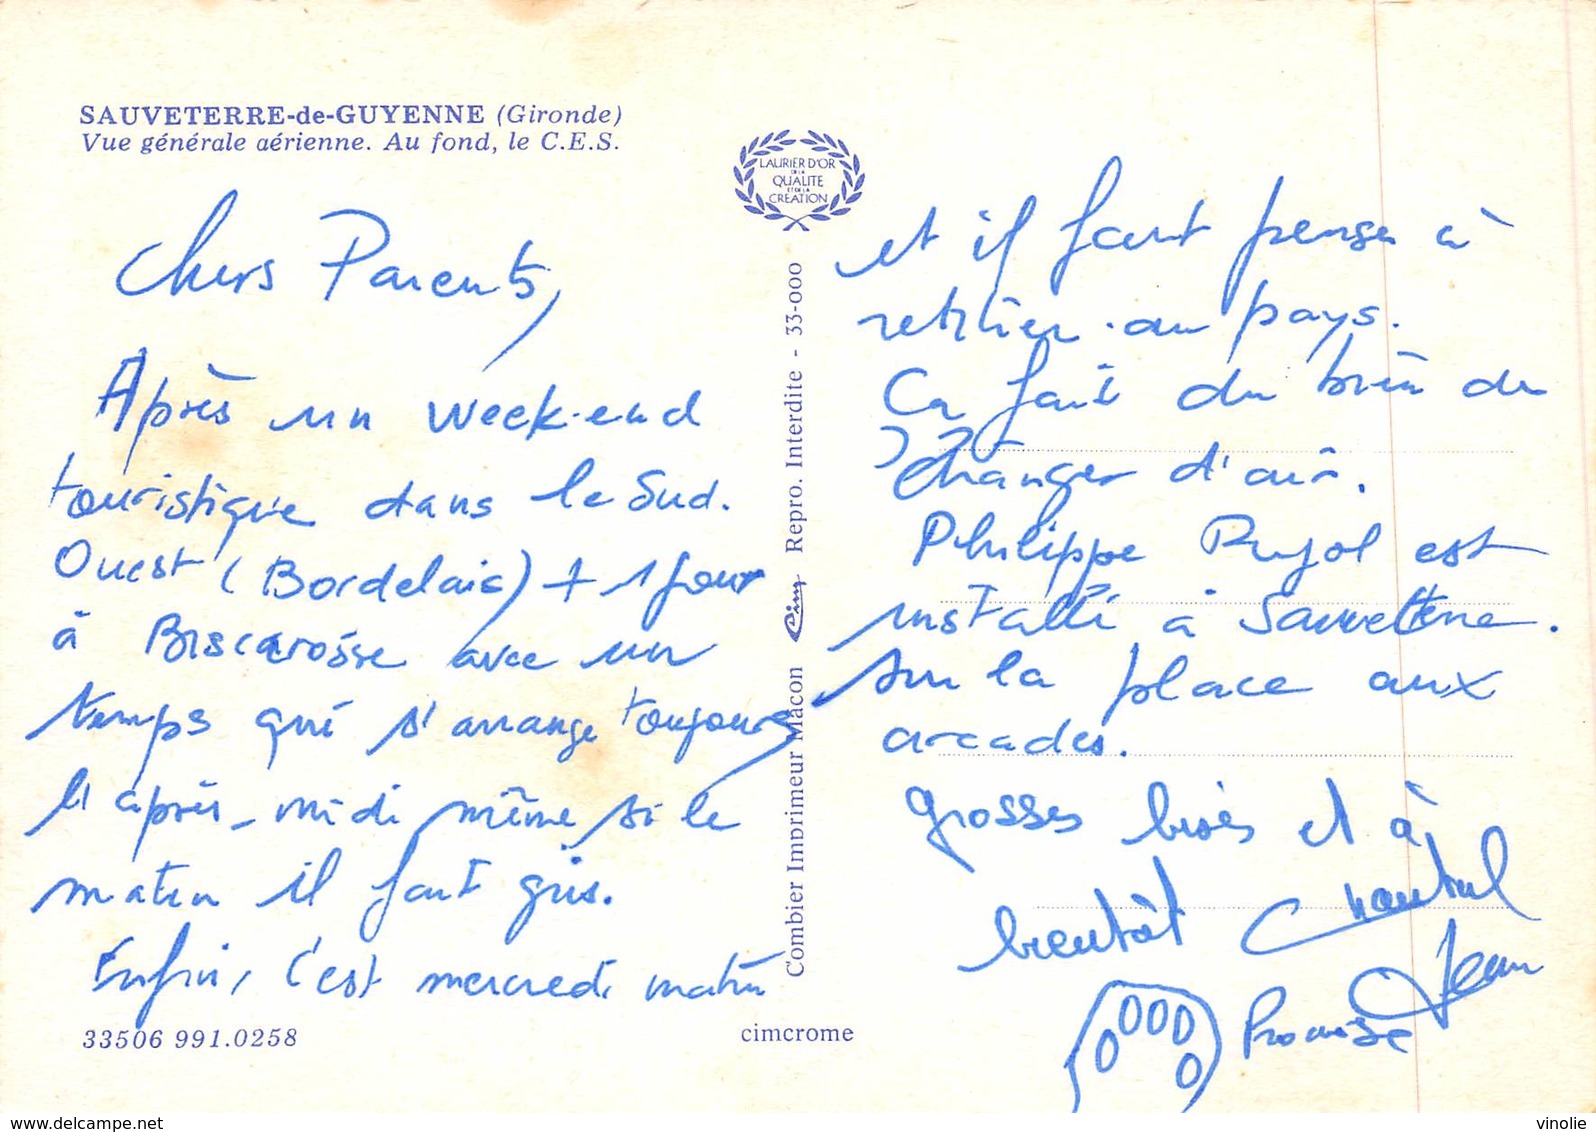 SAUVETERRE-de-GUYENNE (Gironde)
Vue générale aérienne. Au fond, le C.E.S.
LAURIER D'OR
DE LA
QUALITE
ET DE LA
CREATION
Chers Parents,
Après un week-end
touristique dans le Sud.
Ouest (Bordelais) + 1 jour
à Biscarosse avec un
temps qui s'arrange toujours
l'après-midi même si le
matin il fait gris.
Enfin, c'est mercredi matin
33506 991.0258
Combier Imprimeur Mâcon Cim Repro. Interdite - 33-000
cimcrome
et il faut penser à
au pays.
Ca fait du bien de
changer d'air.
Philippe Pujol est
installé à Sauveterre.
sur la place aux
arcades.
Grosses bises et à
bientôt Chantal
Jean
Promise
delcampe.net
vinolie